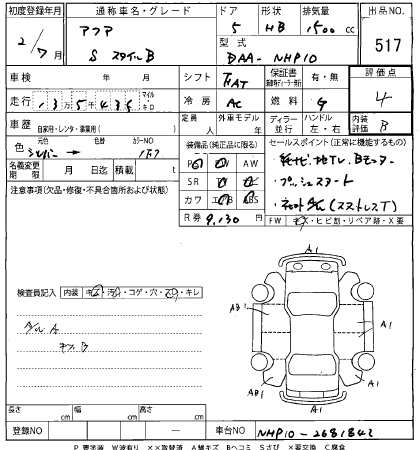 初度登録年月 通称車名・グレード ドア 形状 排気量 出品NO.
21/7月 アクア 5 HB 1500 cc 517
S スタイルB 型式 DAA-NHP10
車検 年 月 シフト FAT 保証書 有・無 評価点
走行 135,435 マイル キロ 冷房 AC 燃料 G 4
車歴 自家用・レンタ・事業用( ) 定員 人 外車モデル 年 ディーラー 並行 ハンドル 左・右 内装評価 B
色 シルバー → 色替 カラーNO 1F7
装備品(純正品に限る) セールスポイント(正常に機能するもの)
名義変更期限 月 日迄 積載 t
PS PW AW 純ナビ地TV、Bモニター
SR プッシュスタート
注意事項(欠品・修復・不具合箇所および状態)
カワ エアB ABS
R券 9,130円 FW キズ・ヒビ割・リペア跡・X要
検査員記入 内装 キズ・汚れ・コゲ・穴・スリ・キレ
A1
AB1
A1
AB1
A1
A1
長さ cm 幅 cm 高さ cm
登録NO ー 車台NO NHP10-2681842
P 要塗装 W波有り ××取替済 A線キズ Bヘコミ Sさび ×要交換 C腐食